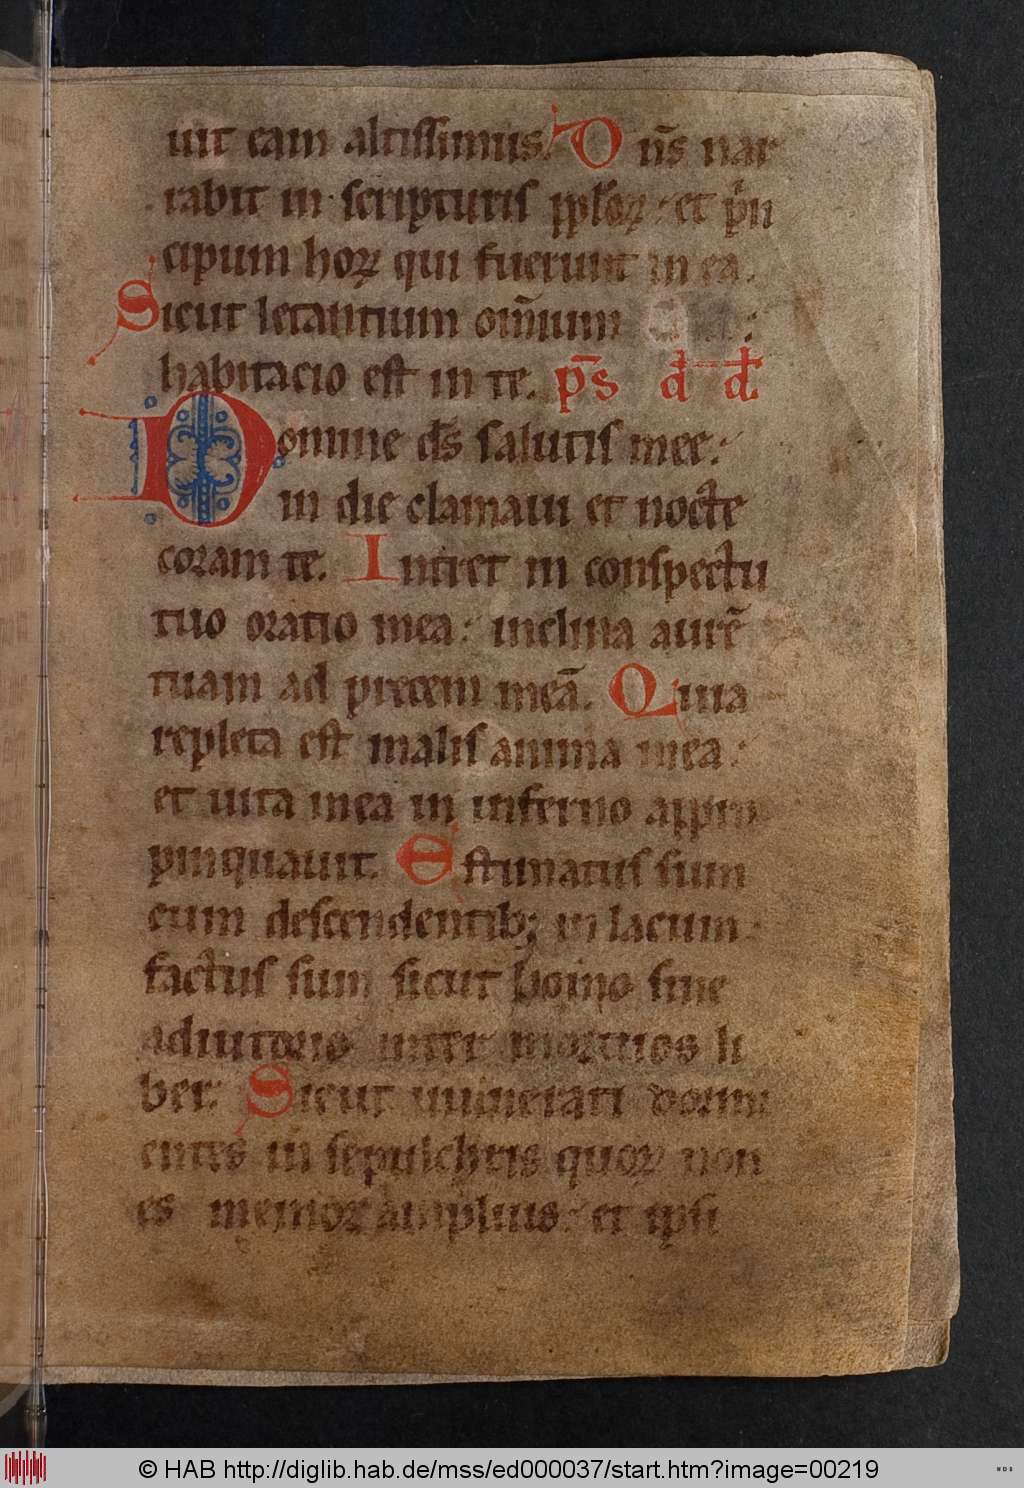 uit eam altissimus. Dn̄s nar
rabit in scripturis ppl̄oꝝ : et p̄in
cipum hoꝝ qui fuerunt in ea.
Sicut letantium om̄ium
habitacio est in te. p̄s d d
Domine ds̄ salutis mee :
in die clamaui et nocte
coram te. Intret in conspectu
tuo oratio mea : inclina aurē
tuam ad precem meā. Quia
repleta est malis anima mea :
et uita mea in inferno appro
pinquauit. Estimatus sum
cum descendentib; in lacum :
factus sum sicut homo sine
adiutorio inter mortuos li
ber. Sicut uulnerati dormi
entes in sepulchris quoꝝ non
es memor amplius : et ipsi
© HAB http://diglib.hab.de/mss/ed000037/start.htm?image=00219